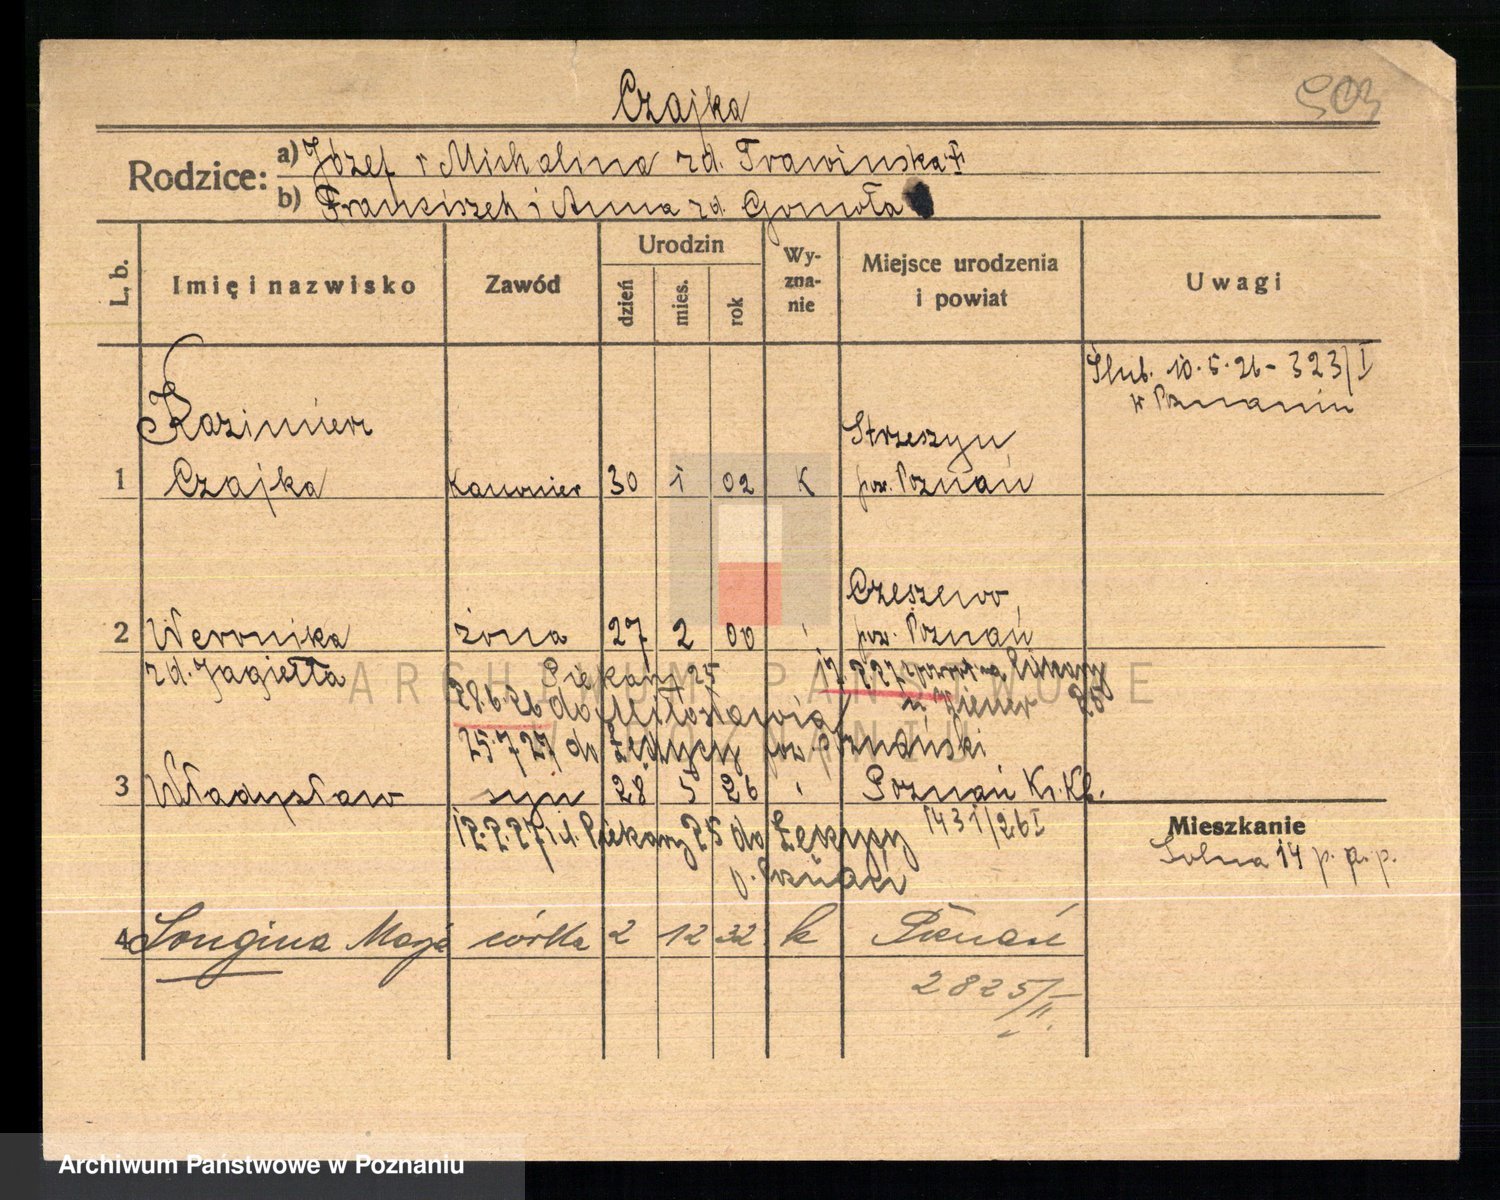 Czajka
503
Rodzice:
a) Józef i Michalina rd. Trawinska
b) Franciszek i Anna rd. Gomoła
L. b.
Imię i nazwisko
Zawód
Urodzin
dzień
mies.
rok
Wy-
zna-
nie
Miejsce urodzenia
i powiat
Uwagi
Ślub. 10.5.26 - 323/I
w Poznaniu
Kazimierz
Strzeszyn,
1 Czajka Kanonier 30 1 02 K pow. Poznań
Czeszewo,
2 Weronika żona 27 2 00 pow. Poznań
rd. Jagiełła Piekary 25
28.6.26 do Miłosławia
25.7.27 do Łęczycy pow. Poznański
3 Władysław syn 28 5 26 Poznań Kr. Kl.
12.2.27 Piekary 25 do Łęczycy 1431/26 I
p. Poznań
Mieszkanie
Solna 14 p. p.
4 Longina córka 2 12 32 k Poznań
2825/II.
ARCHIWUM PAŃSTWOWE
W POZNANIU
Archiwum Państwowe w Poznaniu